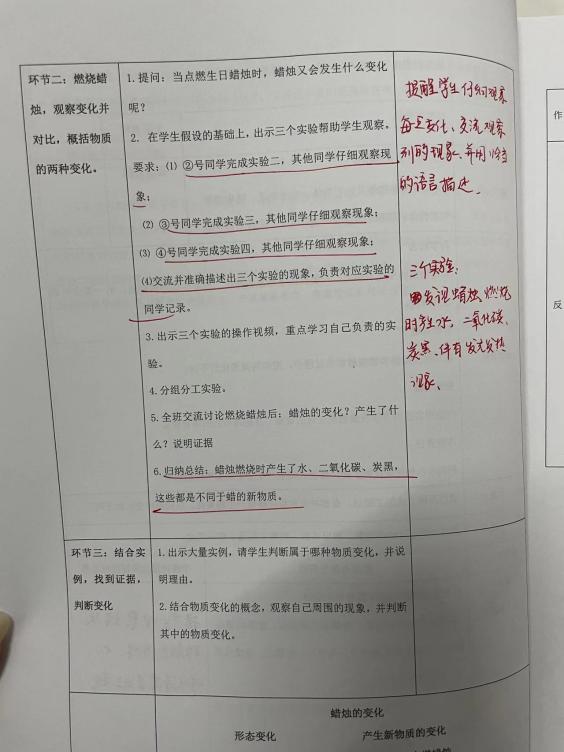 环节二：燃烧蜡
烛，观察变化并
对比，概括物质
的两种变化。
1.提问：当点燃生日蜡烛时，蜡烛又会发生什么变化
呢？
2. 在学生假设的基础上，出示三个实验帮助学生观察。
要求：⑴ ②号同学完成实验二，其他同学仔细观察现
象；
⑵ ③号同学完成实验三，其他同学仔细观察现象；
⑶ ④号同学完成实验四，其他同学仔细观察现象；
⑷交流并准确描述出三个实验的现象，负责对应实验的
同学记录。
3.出示三个实验的操作视频，重点学习自己负责的实
验。
4.分组分工实验。
5.全班交流讨论燃烧蜡烛后：蜡烛的变化？产生了什
么？说明证据
6.归纳总结：蜡烛燃烧时产生了水、二氧化碳、炭黑，
这些都是不同于蜡的新物质。
提醒学生仔细观察
每个变化、交流观察
到的现象、并用恰当
的语言描述.
三个实验：
发现蜡烛燃烧
时产生水、二氧化碳、
炭黑、伴有发光发热
现象、
环节三：结合实
例，找到证据，
判断变化
1.出示大量实例，请学生判断属于哪种物质变化，并说
明理由。
2.结合物质变化的概念，观察自己周围的现象，并判断
其中的物质变化。
蜡烛的变化
形态变化 产生新物质的变化
作
反